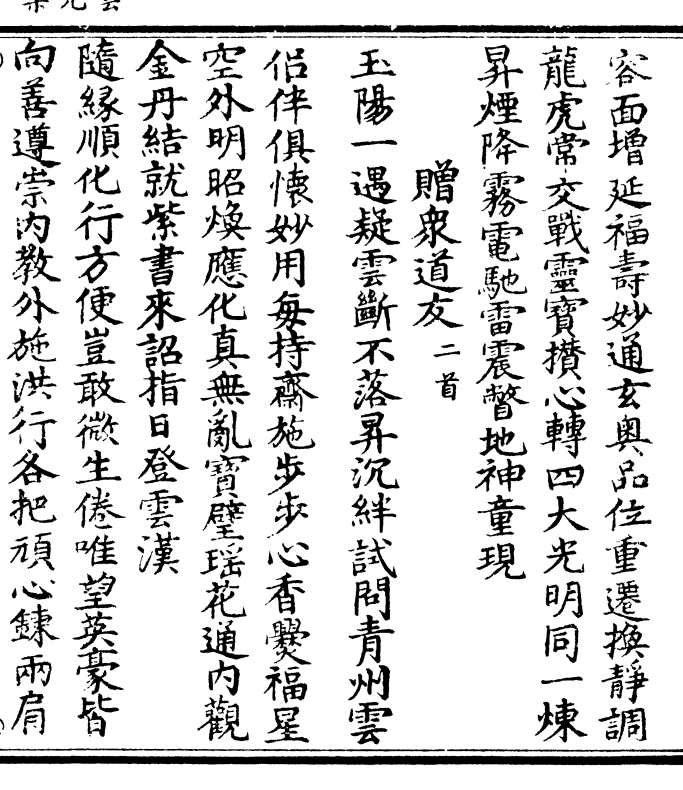 容面增延福壽妙通玄奧品位重遷換靜調
龍虎常交戰靈寶攢心轉四大光明同一煉
昇煙降霧電馳雷震瞥地神童現
贈衆道友二首
玉陽一遇疑雲斷不落昇沉絆試問青州雲
侶伴俱懷妙用每持齋施步步心香爨福星
空外明昭煥應化真無亂寶璧瑶花通內觀
金丹結就紫書來詔指日登雲漢
隨緣順化行方便豈敢微生倦唯望英豪皆
向善遵崇內教外施洪行各把頑心鍊兩肩